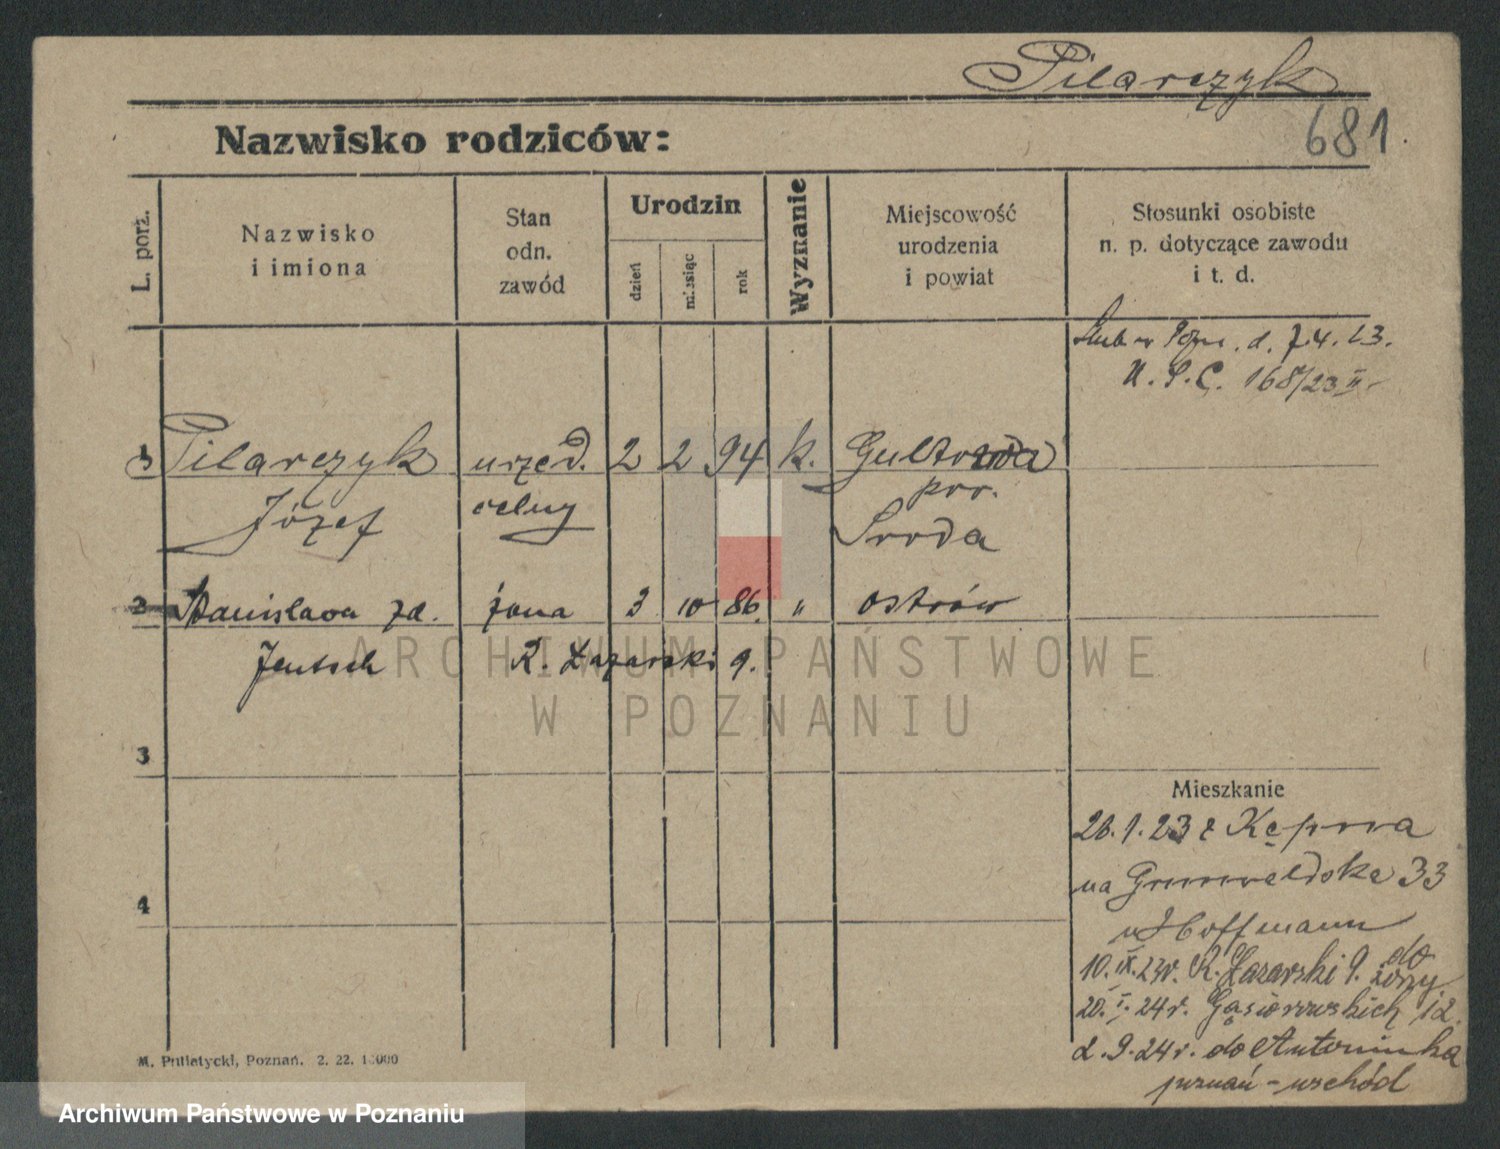 Pilarczyk
681.
Nazwisko rodziców:
L. porż.
Nazwisko
i imiona
Stan
odn.
zawód
Urodzin
dzień
miesiąc
rok
Wyznanie
Miejscowość
urodzenia
i powiat
Stosunki osobiste
n. p. dotyczące zawodu
i t. d.
d. 7.4.23.
U.S.C. 168/23 II
1 Pilarczyk urzęd. 2 2 94 k. Gułtowa
Józef celny pow.
Środa
2 Stanisława zd. żona 3 10 86. " Ostrów
Jentsch R. Łazarski 9.
3
4
Mieszkanie
26.1.23 z Kępna
na Grunwaldska 33
u Hoffmann
10.IX.23r. R. Łazarski 9. do żony
20.I.24r. Gąsiorowskich 12.
2.9.24r. do Antoninka
poznań-wschód
M. Putiatycki, Poznań. 2. 22. 15000
ARCHIWUM PAŃSTWOWE
W POZNANIU
Archiwum Państwowe w Poznaniu